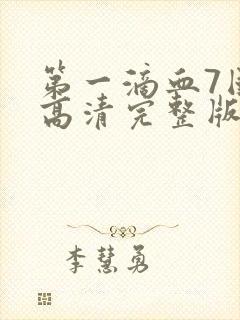 第一滴血7国
高清完整版
李慧勇